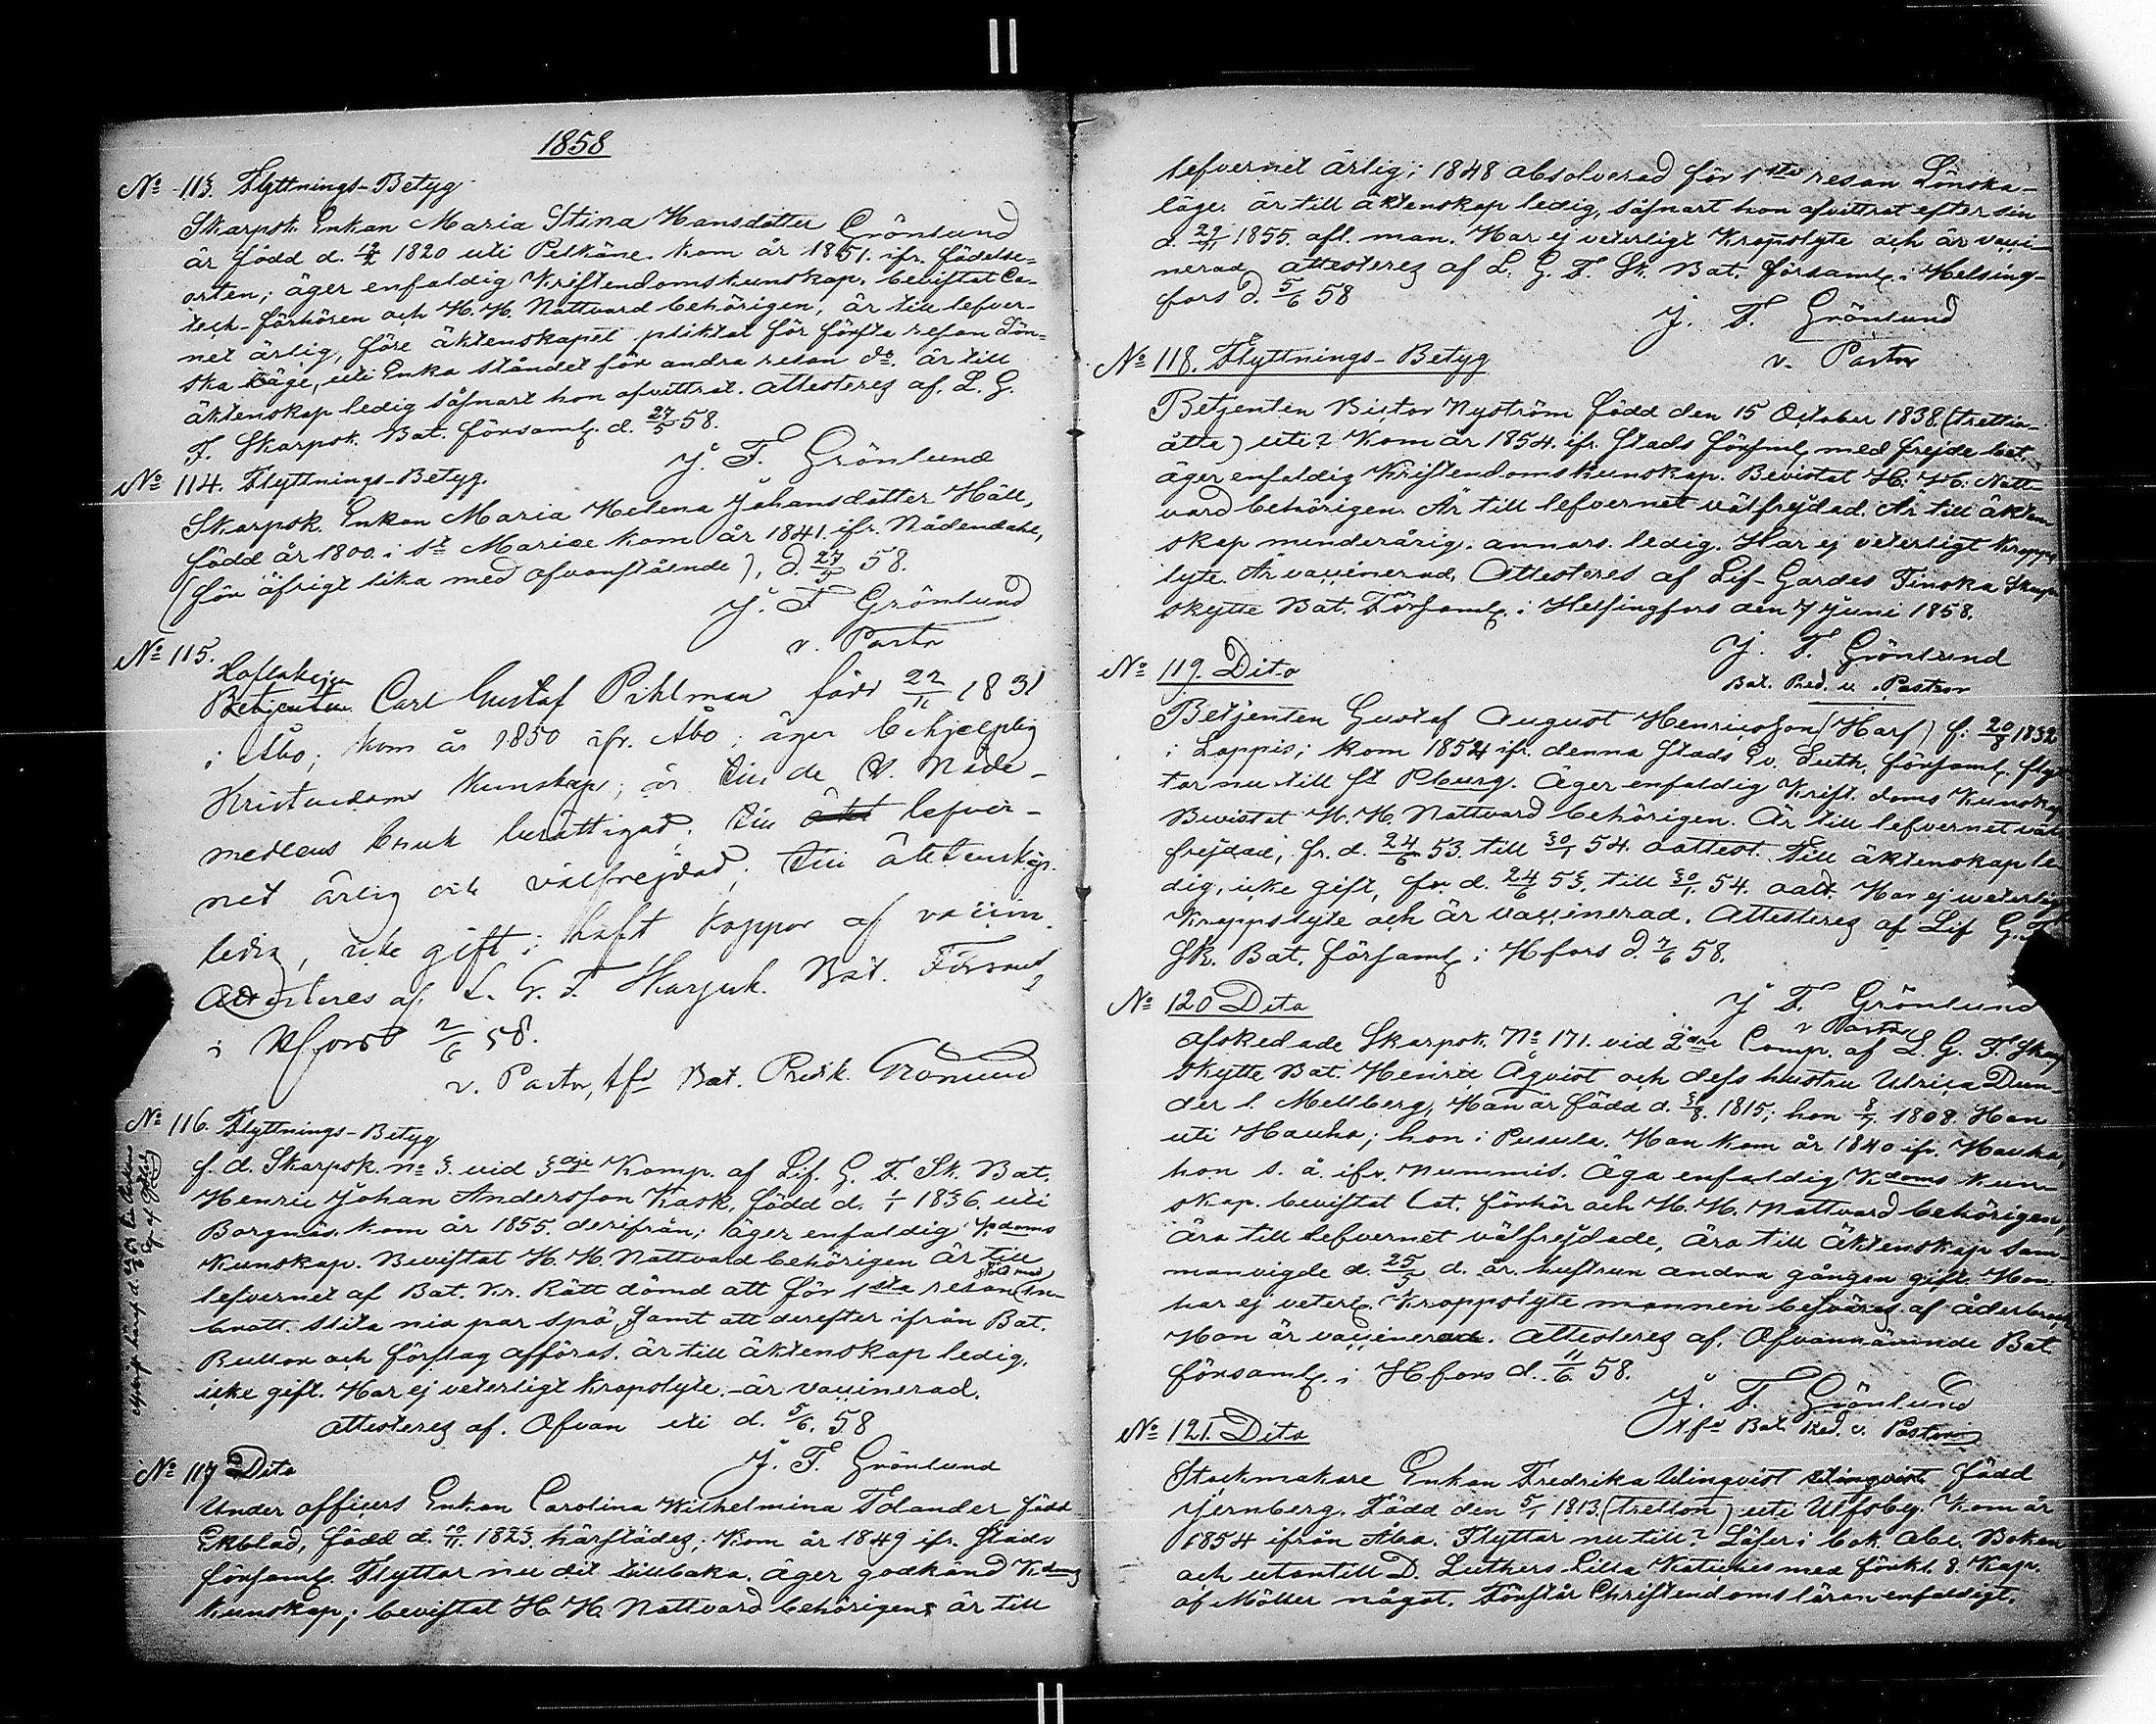 1858
No 113. Flyttnings-Betyg
Skarpsk. Enkan Maria Stina Hansdotter Grönlund
är född d. 1820 uti Pelkäne. kom år 1851. ifr. födelse-
orten; äger enfaldig Kristendomskunskap. bevistat Ca-
tech-förhören och H. H. Nattvard behörigen, är till lefver-
net ärlig, före äktenskapet pliktat för första resan Lön-
ska Läge, uti Enka ståndet för andra resan do. är till
äktenskap ledig såsnart hon afvittrat. attesteres af. L. G.
F. Skarpsk. Bat. församl. d. 27/5 58.
J. F. Grönlund
No 114. Flyttnings-Betyg.
Skarpsk. Enkan Maria Helena Johansdotter Häll,
född år 1800. i St Mariæ kom år 1841. ifr. Nådendahl,
(för öfrigt lika med ofvanstående), d. 27/5 58.
J. F Grönlund
v. Pastor
No 115.
Carl Gustaf Pihlman född 22/11 1831
i Åbo; kom år 1850 ifr. Åbo; äger behjelplig
Kristendoms kunskap; är till de H. Nåde-
medlens bruk berättigad; till lefver-
net ärlig och välfrejdad; till äktenskap
ledig, icke gift; haft koppor af vaccin.
Attesteres af L. G. F. Skarpsk. Bat. Församl
i Hfors d 2/6 58.
v. Pastor, tfd Bat. Predik. Grönlund
No 116. Flyttnings-Betyg
f. d. Skarpsk. no 3. vid 3dje Komp. af Lif. G. F. Sk. Bat.
Henric Johan Andersson Kask, född d. 1/1 1836. uti
Borgnäs. kom år 1855. derifrån; äger enfaldig Kdoms
kunskap. Bevistat H. H. Nattvard behörigen är till
lefvernet af Bat. Kr. Rätt dömd att för 1sta resan stöld med in-
brott. slita nio par spö, samt att derefter ifrån Bat.
Rullor och förslag afföras. är till äktenskap ledig,
icke gift. Har ej veterligt kropslyte. är vaccinerad.
attesteres af. Ofvan uti d. 5/6. 58
J. F. Grönlund
No 117 Dito
Under officers Enkan Carolina Wilhelmina Tolander född
Ekblad, född d. 1823. härstädes; kom år 1849 ifr. stads
församl. Flyttar nu dit tillbaka. äger godkänd Kdoms
kunskap; bevistat H. H. Nattvard behörigen; är till
lefvernet ärlig; 1848 absolverad för 1sta resan Lönska-
läge. är till äktenskap ledig, såsnart hon afvittrat efter sin
d. 29/11 1855. afl. man. Har ej veterligt Kropslyte och är vacci-
nerad attesteres af L. G. F. Sk. Bat. församl. i Helsing-
fors d. 5/6 58
J. F. Grönlund
v. Pastor
No 118. Flyttnings-Betyg
Betjenten Victor Nyström född den 15 October 1838. (trettio-
åtta) uti? Kom år 1854. ifr. stads församl. med frejde bet.
äger enfaldig Kristendomskunskap. Bevistat H. H. Natt-
vard behörigen. Är till lefvernet välfrejdad. Är till äkten-
skap minderårig. annars. ledig. Har ej veterligt kropps-
lyte. Är vaccinerad. Attesteres af Lif-Gardes Finska Skarp-
skytte Bat. Församl. i Helsingfors den 7 Juni 1858.
J. F. Grönlund
Bat. Pred. v. Pastor
No 119. Dito
Betjenten Gustaf August Henricsson (Harf) f: 20/8 1832
i Loppis; kom 1854 ifr. denna stads Ev. Luth. församl. flyt-
tar nu till St Pburg. Äger enfaldig Krist. doms kunskap
Bevistat H. H. Nattvard behörigen. Är till lefvernet väl-
frejdad, fr. d. 24/6 53. till 30/1 54. oattest. Till äktenskap le-
dig, icke gift, fr. d. 24/6 53. till 30/1 54. oatt. Har ej veterligt
Kroppslyte och är vaccinerad. Attesteres af Lif G. F.
Sk. Bat. församl. i Hfors d. 7/6 58.
J F. Grönlund
v Pastor
No 120 Dito
afskedade Skarpsk. No 171. vid 2dra Comp. af L. G. F. Skarp
skytte Bat. Henric Åqvist och dess hustru Ulrica Dun-
der l. Mellberg, Han är född d. 31/8. 1815; hon 1808. Han
uti Hauho; hon i Pusula. Han kom år 1840 ifr. Hauho,
hon s. å. ifr. Nummis. Äga enfaldig Kdoms kun-
skap. bevistat Cat. förhör och H. H. Nattvard behörigen,
äro till lefvernet välfrejdade, äro till äktenskap sam-
manvigde d. 25/5 d. år. hustrun andra gången gift. Hon
har ej veterl. Kroppslyte mannen besväras af åderbråck
Hon är vaccinerad. Attesteres af. Ofvannämnde Bat
församl. i Hfors d. 11/6 58.
J. F. Grönlund
tfd Bat. Pred. v. Pastor
No 121. Dito
Stockmakare Enkan Fredrika Ulinqvist född
Jernberg. Född den 5/1 1813. (tretton) uti Ulfsby. Kom år
1854 ifrån Åbo. Flyttar nu till? Läser i bok. Abc. Boken
och utantill D. Luthers Lilla Kateches med förkl. 8. Kap.
af Möller något. Förstår Christendomsläran enfaldigt.